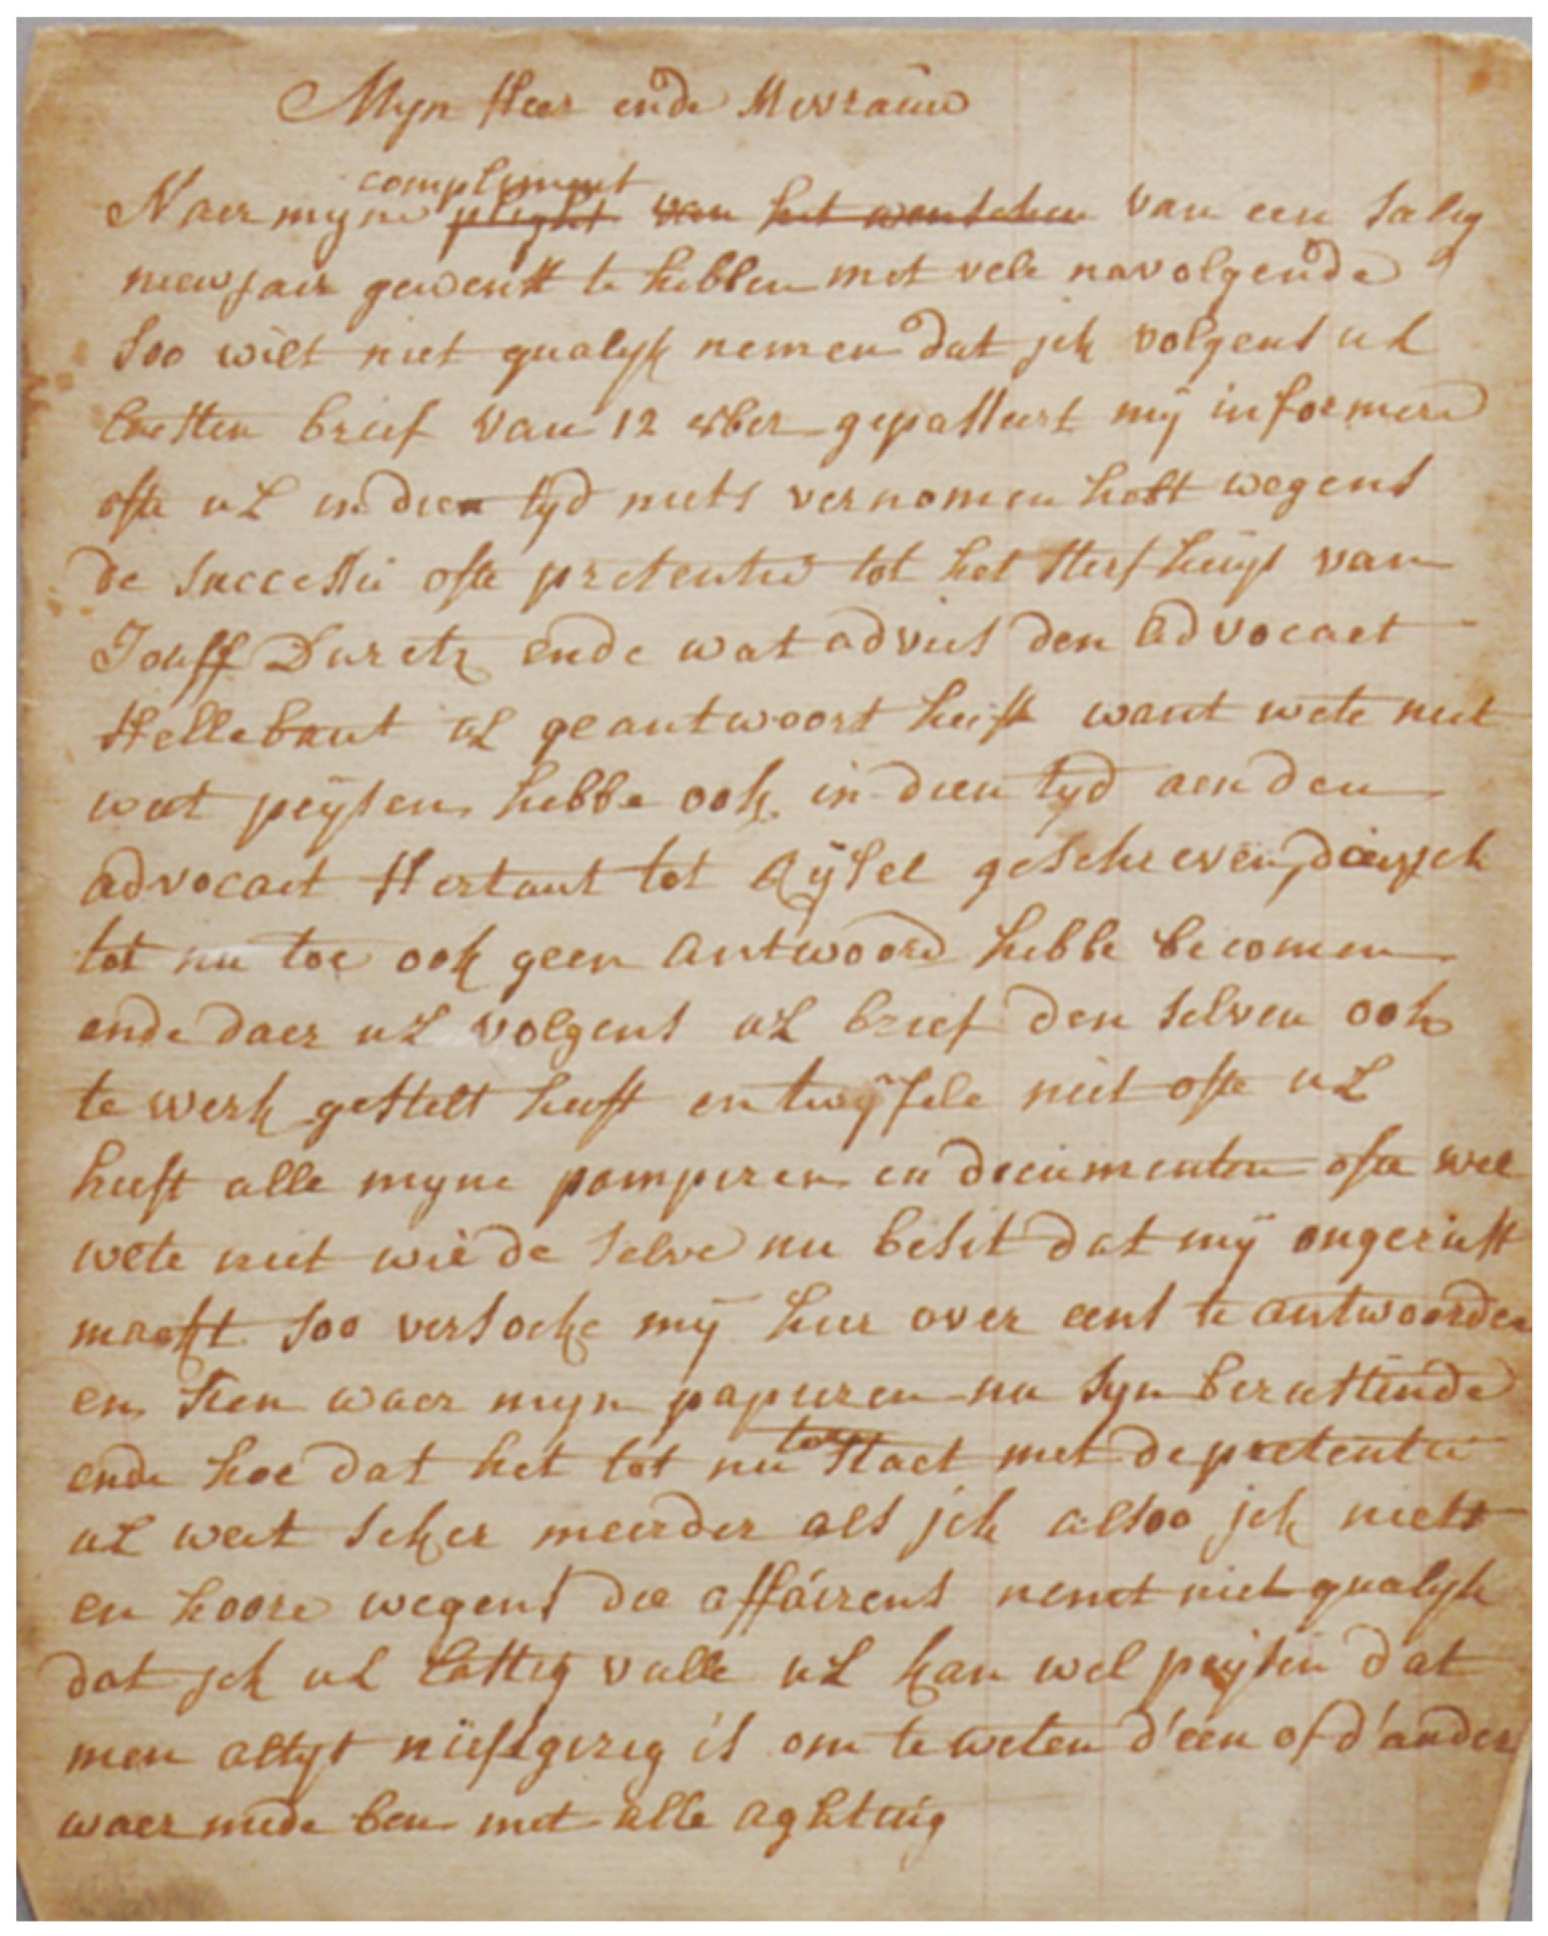 Myn Heer ende Mevrauw
compliment
Naer myne plight van het wenschen van een salig
nieuwjaer gewenst te hebben met vele navolgende
soo wilt niet qualyk nemen dat jck volgens uL
lresten brief van 12 8ber gepasseert mÿ informere
ofte uL in dien tyd niets vernomen heeft wegens
de successie ofte pretentie tot het sterfhuys van
Jouff Duretz ende wat advies den advocaet
Hellebaut uL geantwoort heeft want wete niet
wat peÿsen hebbe ook in dien tyd aen den
advocaet Hertaut tot Rÿsel geschreven, dien jck
tot nu toe ook geen antwoord hebbe becomen
ende daer uL volgens uL brief den selven ook
te werk gestelt heeft en twÿfele niet ofte uL
heeft alle myne pampieren en documenten ofte wel
wete niet wie de selve nu besit dat mÿ ongerust
maekt soo versoeke mÿ hier over eens te antwoorden
en sien waer myn papieren nu syn berustende
toe
ende hoe dat het tot nu staet met de pretentie
uL weet seker meerder als jck alsoo jck niets
en hoore wegens die affairens nemt niet qualyk
dat jck uL lastig valle uL kan wel peÿsen dat
men altyt niefsgirig is om te weten d'een of d'ander
waer mede ben met alle aghting